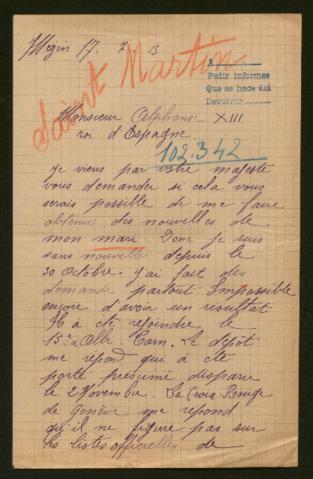 Mézin 17. 2. 15
Saint Martin
A
Pedir informes
Que se hace así
Devolver
Monsieur Alphonse XIII
roi d'Espagne
102.342
Je viens par votre majesté
vous demander si cela vous
serais possible de me faire
obtenir des nouvelles de
mon mari Donc je suis
sans nouvelle depuis le
30 Octobre. J'ai fait des
demande partout Impossible
encore d'avoir un résultat
Il a été rejoindre le
15e à Alb. Tarn. Le dépôt
me répond qui a été
porté présumé disparu
le 2 Novembre. La Croix-Rouge
de Genève me répond
qu'il ne figure pas sur
les listes officielles de